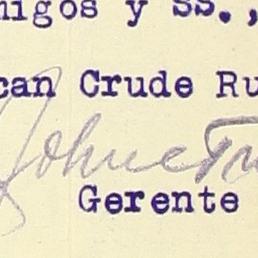 migos y SS.,
can Crude Ru
Gerente